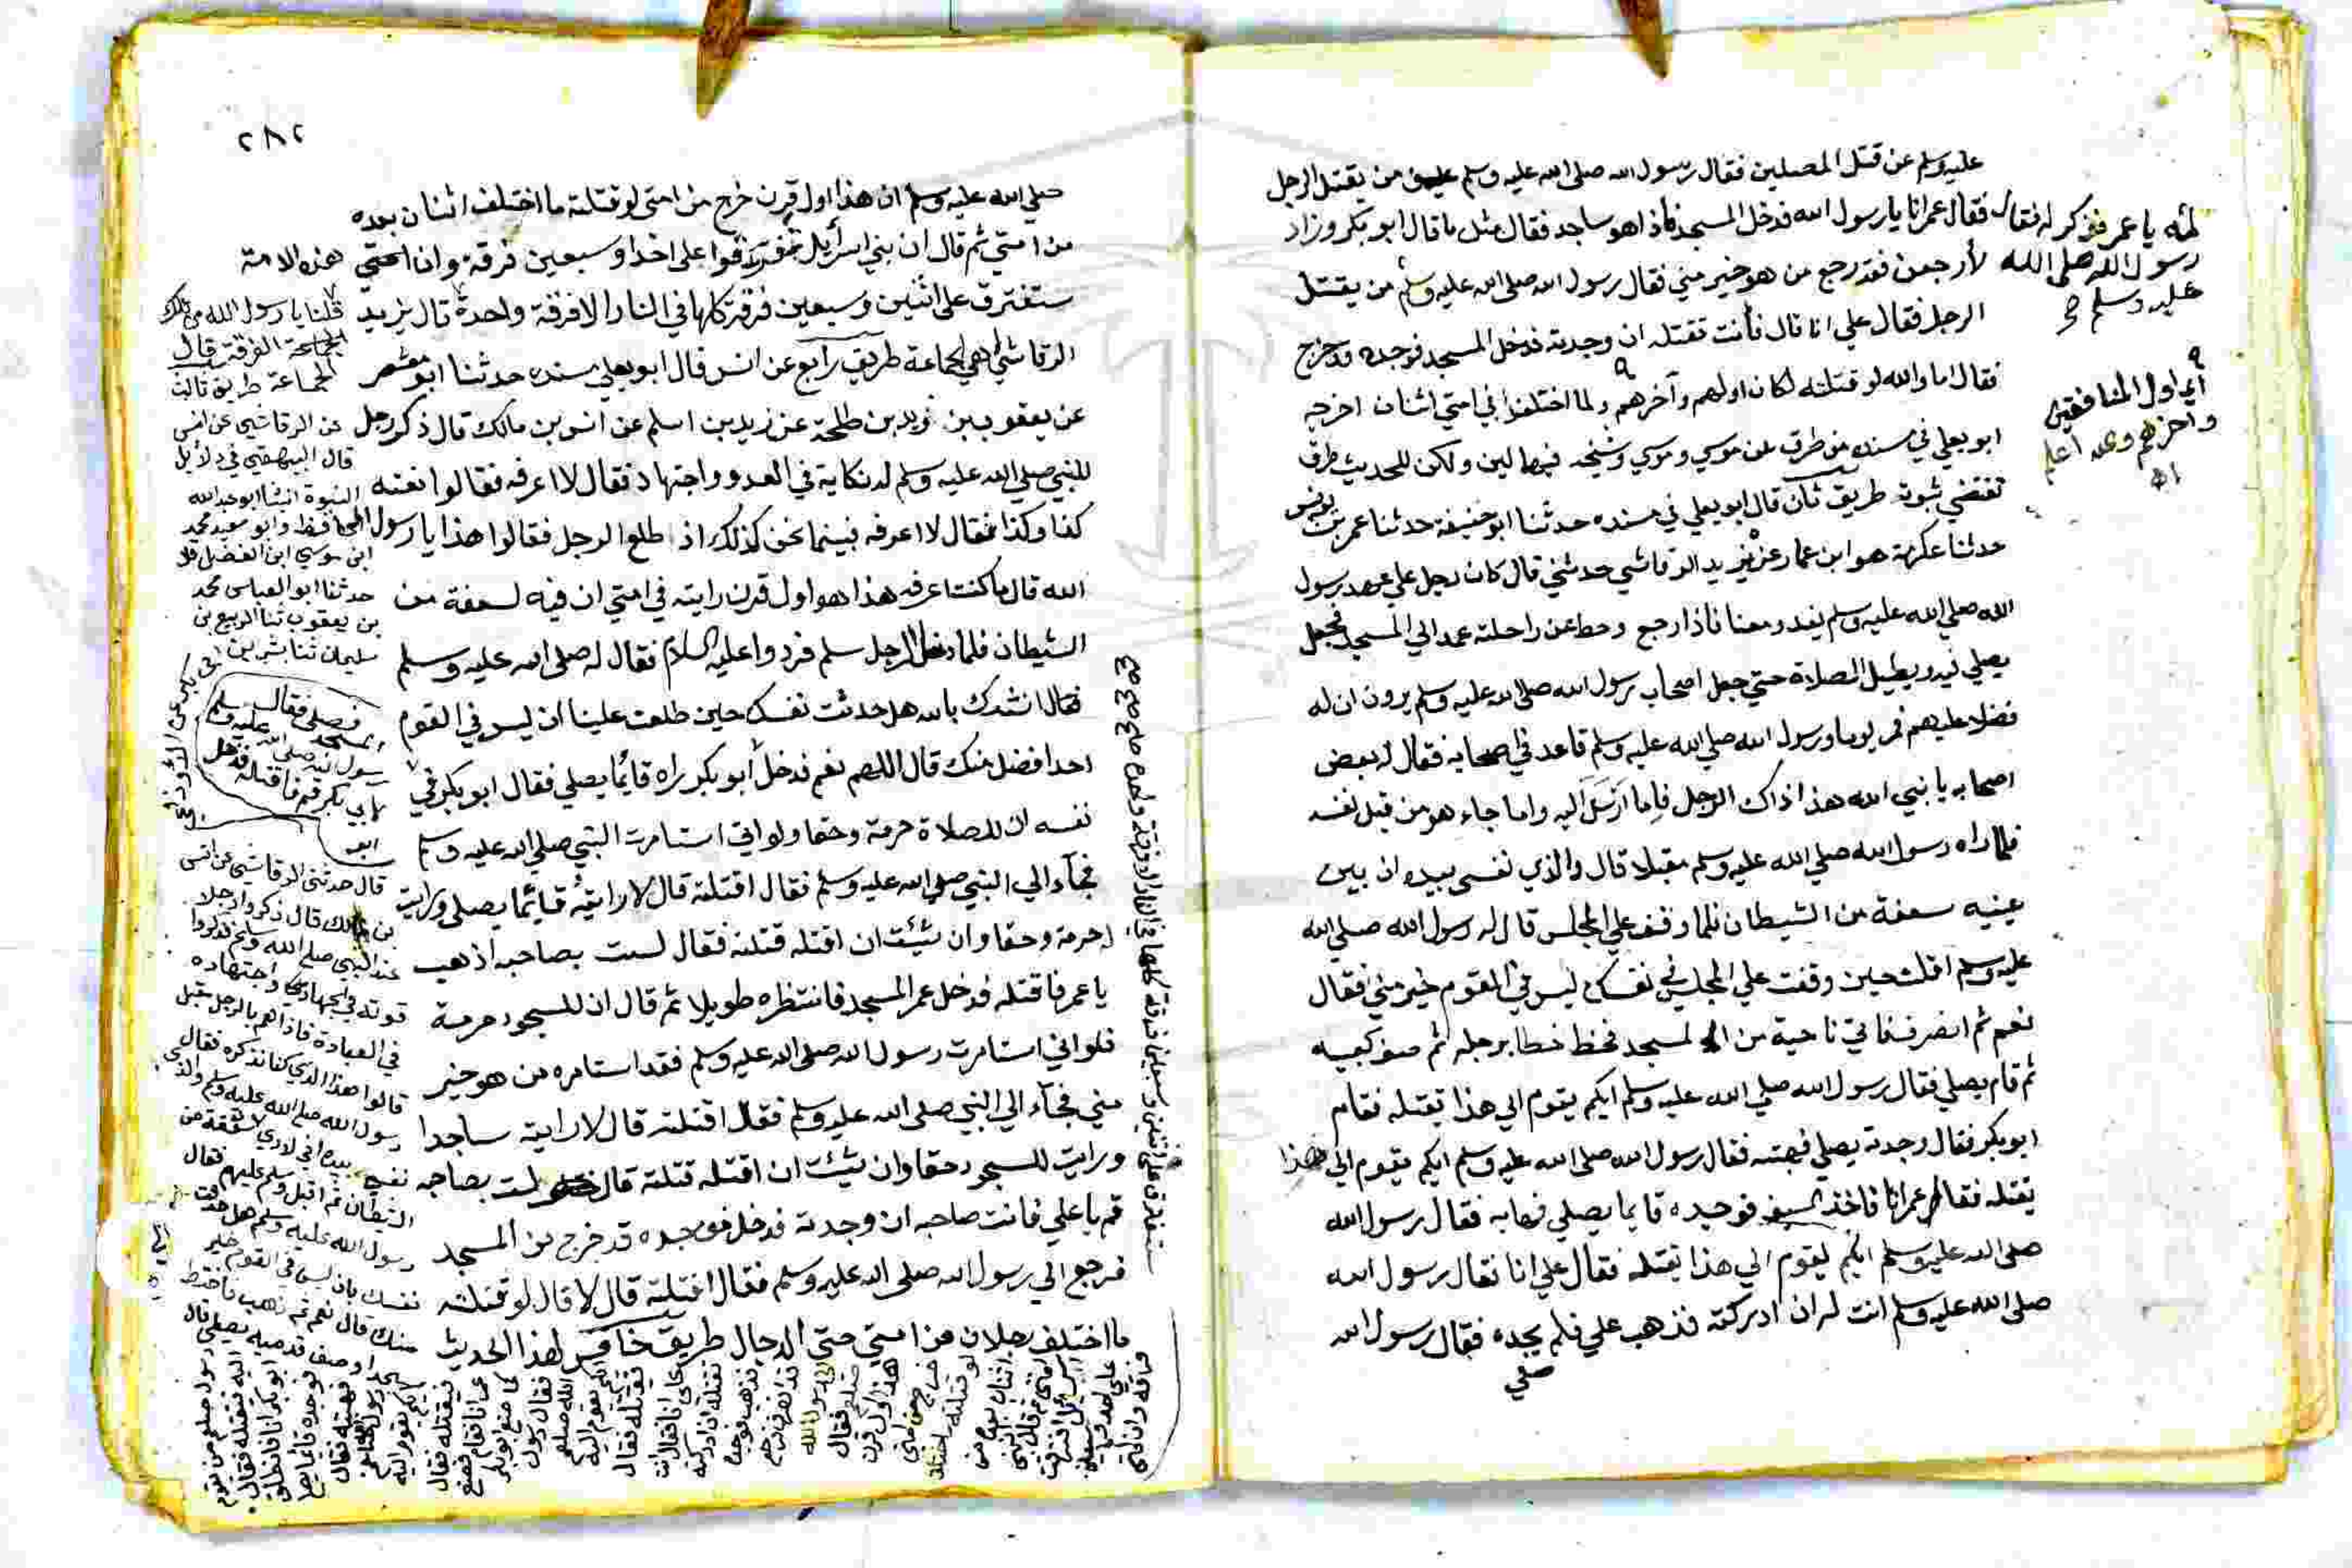 عليه وسلم عن قتل المصلين فقال رسول الله صلى الله عليه وسلم من يقتل الرجل
فقال عمر انا يا رسول الله فدخل المسجد فاذا هو ساجد فقال مثل ما قال ابو بكر وزاد
لأرجعن فقد رجع من هو خير مني فقال رسول الله صلى الله عليه وسلم من يقتل
الرجل فقال علي انا قال فأنت تقتله ان وجدته فدخل المسجد فوجده قد خرج
فقال اما والله لو قتلته لكان اولهم وآخرهم ولما اختلفوا في امتي اثنان اخرجه
ابو يعلي في مسنده من طرق عن موسي وموسي وشيخه فيهما لين ولكن للحديث طرق
تقتضي ثبوته طريق ثان قال ابو يعلي في مسنده حدثنا ابو خيثمة حدثنا عمر بن يونس
حدثنا عكرمة هو ابن عمار عن يزيد الرقاشي حدثني قال كان رجل علي عهد رسول
الله صلي الله عليه وسلم يغدو معنا فاذا رجع وحط عن راحلته عمد الي المسجد فجعل
يصلي فيه ويطيل الصلاة حتي جعل اصحاب رسول الله صلى الله عليه وسلم يرون ان له
فضلا عليهم فمر يوما ورسول الله صلي الله عليه وسلم قاعد في اصحابه فقال له بعض
اصحابه يا نبي الله هذا ذاك الرجل فاما ارسل اليه واما جاء هو من قبل نفسه
فلما راه رسول الله صلي الله عليه وسلم مقبلا قال والذي نفسي بيده ان بين
عينيه سعفة من الشيطان فلما وقف علي المجلس قال له رسول الله صلي الله
عليه وسلم اقلت حين وقفت علي المجلس في نفسك ليس في القوم خير مني فقال
نعم ثم انصرف فاتي ناحية من المسجد فخط خطا برجله ثم صف كعبيه
ثم قام يصلي فقال رسول الله صلي الله عليه وسلم ايكم يقوم الي هذا يقتله فقام
ابو بكر فقال وجدته يصلي فهبته فقال رسول الله صلى الله عليه وسلم ايكم يقوم الي هذا
يقتله فقال عمر انا فاخذ السيف فوجده قايما يصلي فهابه فقال رسول الله
صلى الله عليه وسلم ايكم يقوم الي هذا يقتله فقال علي انا فقال رسول الله
صلى الله عليه وسلم انت له ان ادركته فذهب علي فلم يجده فقال رسول الله
صلي
لمه يا عمر فذكر له فقال
رسول الله صلى الله
عليه وسلم
اي اول المنافقين
وآخرهم والله اعلم
اه
٢٨٢
صلي الله عليه وسلم ان هذا اول قرن خرج من امتي لو قتلته ما اختلف اثنان بعده
من امتي ثم قال ان بني اسرائيل تفرقوا على احدا وسبعين فرقة وان امتي هذه الامة
ستفترق على اثنين وسبعين فرقة كلها في النار الا فرقة واحدة قال يزيد
الرقاشي هي الجماعة طريق رابع عن انس قال ابو يعلي في مسنده حدثنا ابو معشر
عن يعقوب بن زيد بن طلحة عن زيد بن اسلم عن انس بن مالك قال ذكر رجل
للنبي صلي الله عليه وسلم له نكاية في العدو واجتهاد فقال لا اعرفه فقالوا نعته
كذا وكذا فقال لا اعرفه فبينما نحن كذلك اذ اطلع الرجل فقالوا هذا يا رسول
الله قال ما كنت اعرفه هذا هو اول قرن رايته في امتي ان فيه لسعفة من
الشيطان فلما دخل الرجل سلم فردوا عليه السلام فقال له صلى الله عليه وسلم
فقال انشدك بالله هل حدثت نفسك حين طلعت علينا ان ليس في القوم
احدا افضل منك قال اللهم نعم فدخل أبو بكر راه قائما يصلي فقال ابو بكر في
نفسه ان للصلاة حرمة وحقا ولو اني استامرت النبي صلي الله عليه وسلم
فجآء الي النبي صلى الله عليه وسلم فقال اقتلته قال لا رايته قائما يصلي ورايت
له حرمة وحقا وان شئت ان اقتله قتلته فقال لست بصاحبه اذهب
يا عمر فاقتله فدخل عمر المسجد فانتظره طويلا ثم قال ان للسجود حرمة
فلو اني استامرت رسول الله صلى الله عليه وسلم فقد استامره من هو خير
مني فجآء الي النبي صلى الله عليه وسلم فقال اقتلته قال لا رايته ساجدا
ورايت للسجود حقا وان شئت ان اقتله قتلته قال لست بصاحبه
قم يا علي فانت صاحبه ان وجدته فدخل فوجده قد خرج من المسجد
فرجع الي رسول الله صلى الله عليه وسلم فقال اقتلته قال لا قال لو قتلته
ما اختلف رجلان من امتي حتى الدجال طريق خامس لهذا الحديث
قلنا يا رسول الله من تلك
الفرقة قال
الجماعة طريق ثالث
عن الرقاشي عن انس
قال البيهقي في دلايل
النبوة انبئنا ابو عبد الله
الحافظ وابو سعيد محمد
ابن موسي ابن الفضل قالا
حدثنا ابو العباس محمد
بن يعقوب ثنا الربيع بن
سليمان ثنا بشر بن
ابي بكر عن الاوزاعي
المسجد فصلى فقال
رسول الله صلى الله عليه وسلم
لابي بكر قم فاقتله فدخل
قال حدثني الرقاشي عن انس
بن مالك قال ذكروا رجلا
عند النبي صلى الله عليه وسلم فذكروا
قوته في الجهاد واجتهاده
في العبادة فاذا هم بالرجل مقبل
قالوا هذا الذي كنا نذكره فقال
رسول الله صلى الله عليه وسلم والذي
نفسي بيده اني لاري سفعة من
الشيطان ثم اقبل وسلم عليهم فقال
رسول الله عليه وسلم هل حدثت
نفسك بان ليس في القوم خير
منك قال نعم ثم ذهب فاختط
مسجدا وصف قدميه يصلي قال
رسول صلعم من يقوم
اليه فيقتله فقال
ابو بكر انا فانطلق
فوجده قائما يصلي
فهبته فقال
ايكم يقوم اليه
فيقتله فقال
عمر انا فقام فصنع
كما صنع ابو بكر
فقال رسول
الله صلعم
ايكم يقوم اليه
فيقتله فقال
علي انا فقال انت
تقتله ان ادركته
فذهب فوجده
قد انصرف فرجع
الى رسول الله
صلعم فقال
هذا اول قرن
خرج من امتي
لو قتلته ما اختلف
اثنان بعده من
امتي ثم قال ان بني
اسرائيل افترقت
على احد وسبعين
فرقة وان امتي
ستفترق على اثنين وسبعين فرقة كلها في النار الا فرقة واحدة صح صح صح صح